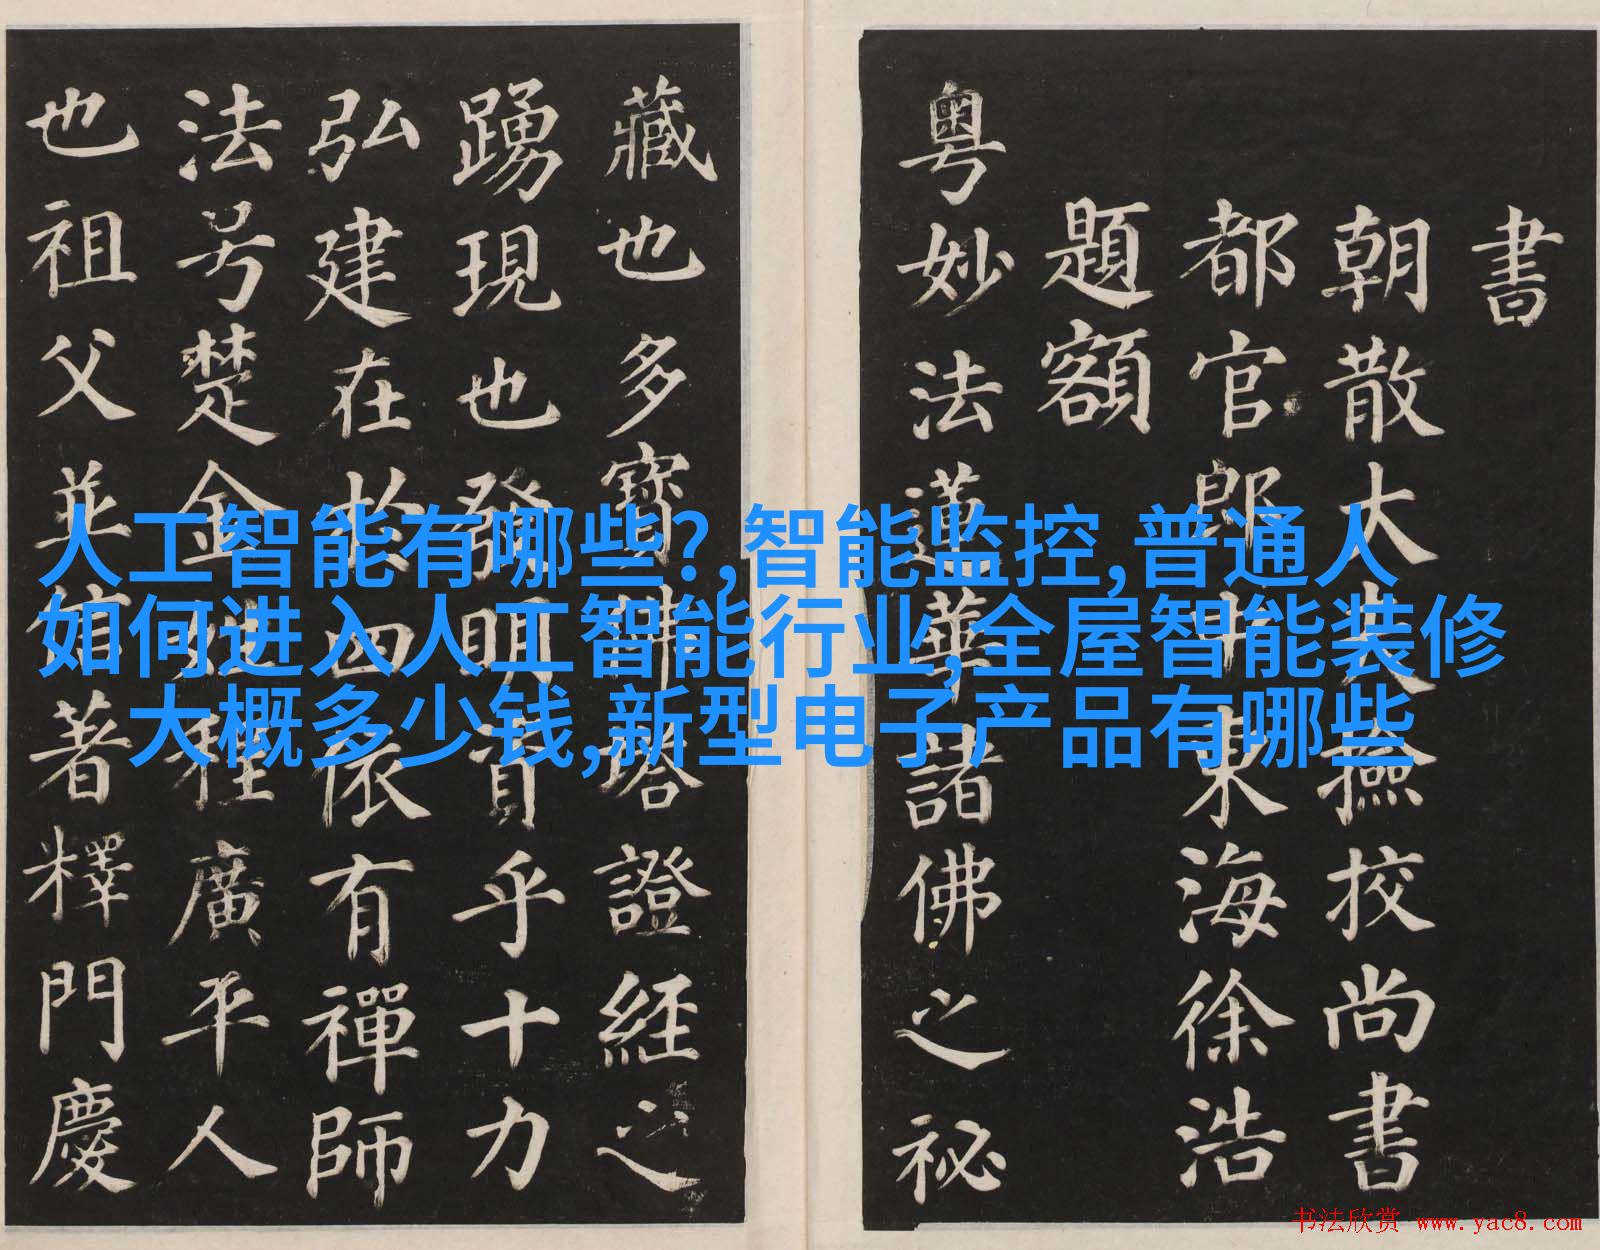 書
朝散大夫撿校尚書
都官郎中東海徐浩
題額
粤妙法蓮華諸佛之秘
藏也多寶佛塔證經之
踴現也發明資乎十力
弘建在於四依有禪師
法号楚金姓程廣平人
也祖父並信著釋門慶
人工智能有哪些?,智能监控,普通人
如何进入人工智能行业,全屋智能装修
大概多少钱,新型电子产品有哪些
书法欣赏 www.yac8.com